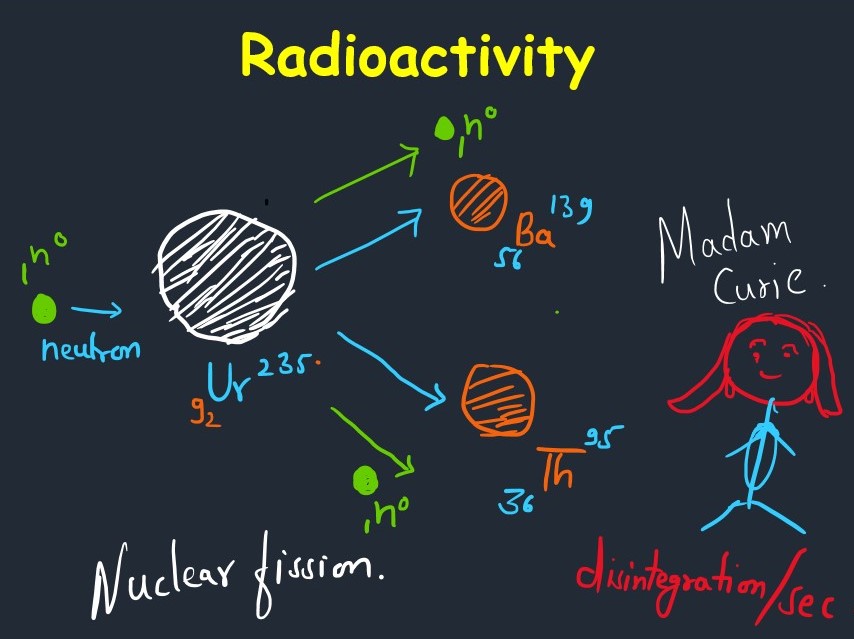 Radioactivity
₁n⁰
₁n⁰
neutron
₉₂Ur²³⁵
₅₆Ba¹³⁹
₃₆Th⁹⁵
₁n⁰
Madam
Curie.
Nuclear fission.
disintegration/sec